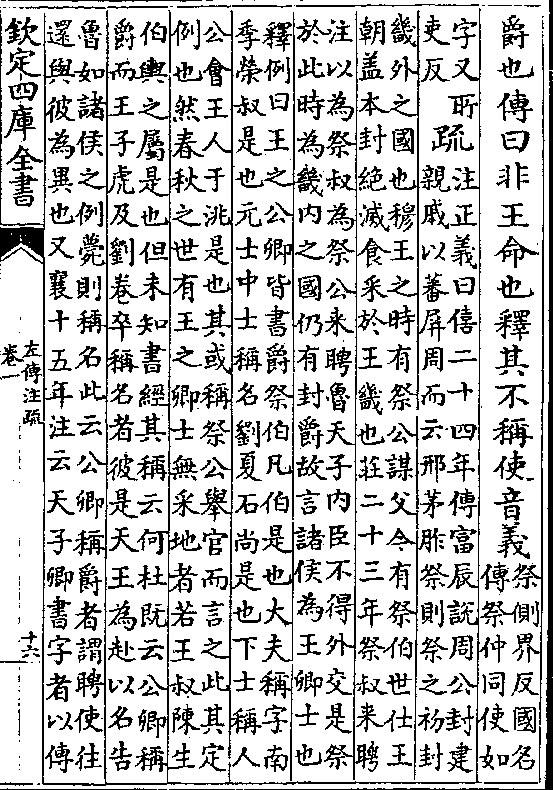 爵也傳曰非王命也釋其不稱使音義祭側界反國名
傳祭仲同使如
字又所
吏反
疏注正義曰僖二十四年傳富辰說周公封建
親戚以蕃屏周而云邢茅胙祭則祭之初封
畿外之國也穆王之時有祭公謀父今有祭伯世仕王
朝蓋本封絕滅食采於王畿也莊二十三年祭叔来聘
注以為祭叔為祭公来聘魯天子内臣不得外交是祭
於此時為畿内之國仍有封爵故言諸侯為王卿士也
釋例曰王之公卿皆書爵祭伯凡伯是也大夫稱字南
季榮叔是也元士中士稱名劉夏石尚是也下士稱人
公會王人于洮是也其或稱祭公舉官而言之此其定
例也然春秋之世有王之卿士無采地者若王叔陳生
伯輿之屬是也但未知書經其稱云何杜既云公卿稱
爵而王子虎及劉卷卒稱名者彼是天王為赴以名告
魯如諸侯之例薨則稱名此云公卿稱爵者謂聘使往
還與彼為異也又襄十五年注云天子卿書字者以傳
欽定四庫全書
左傳注疏
卷一
十六